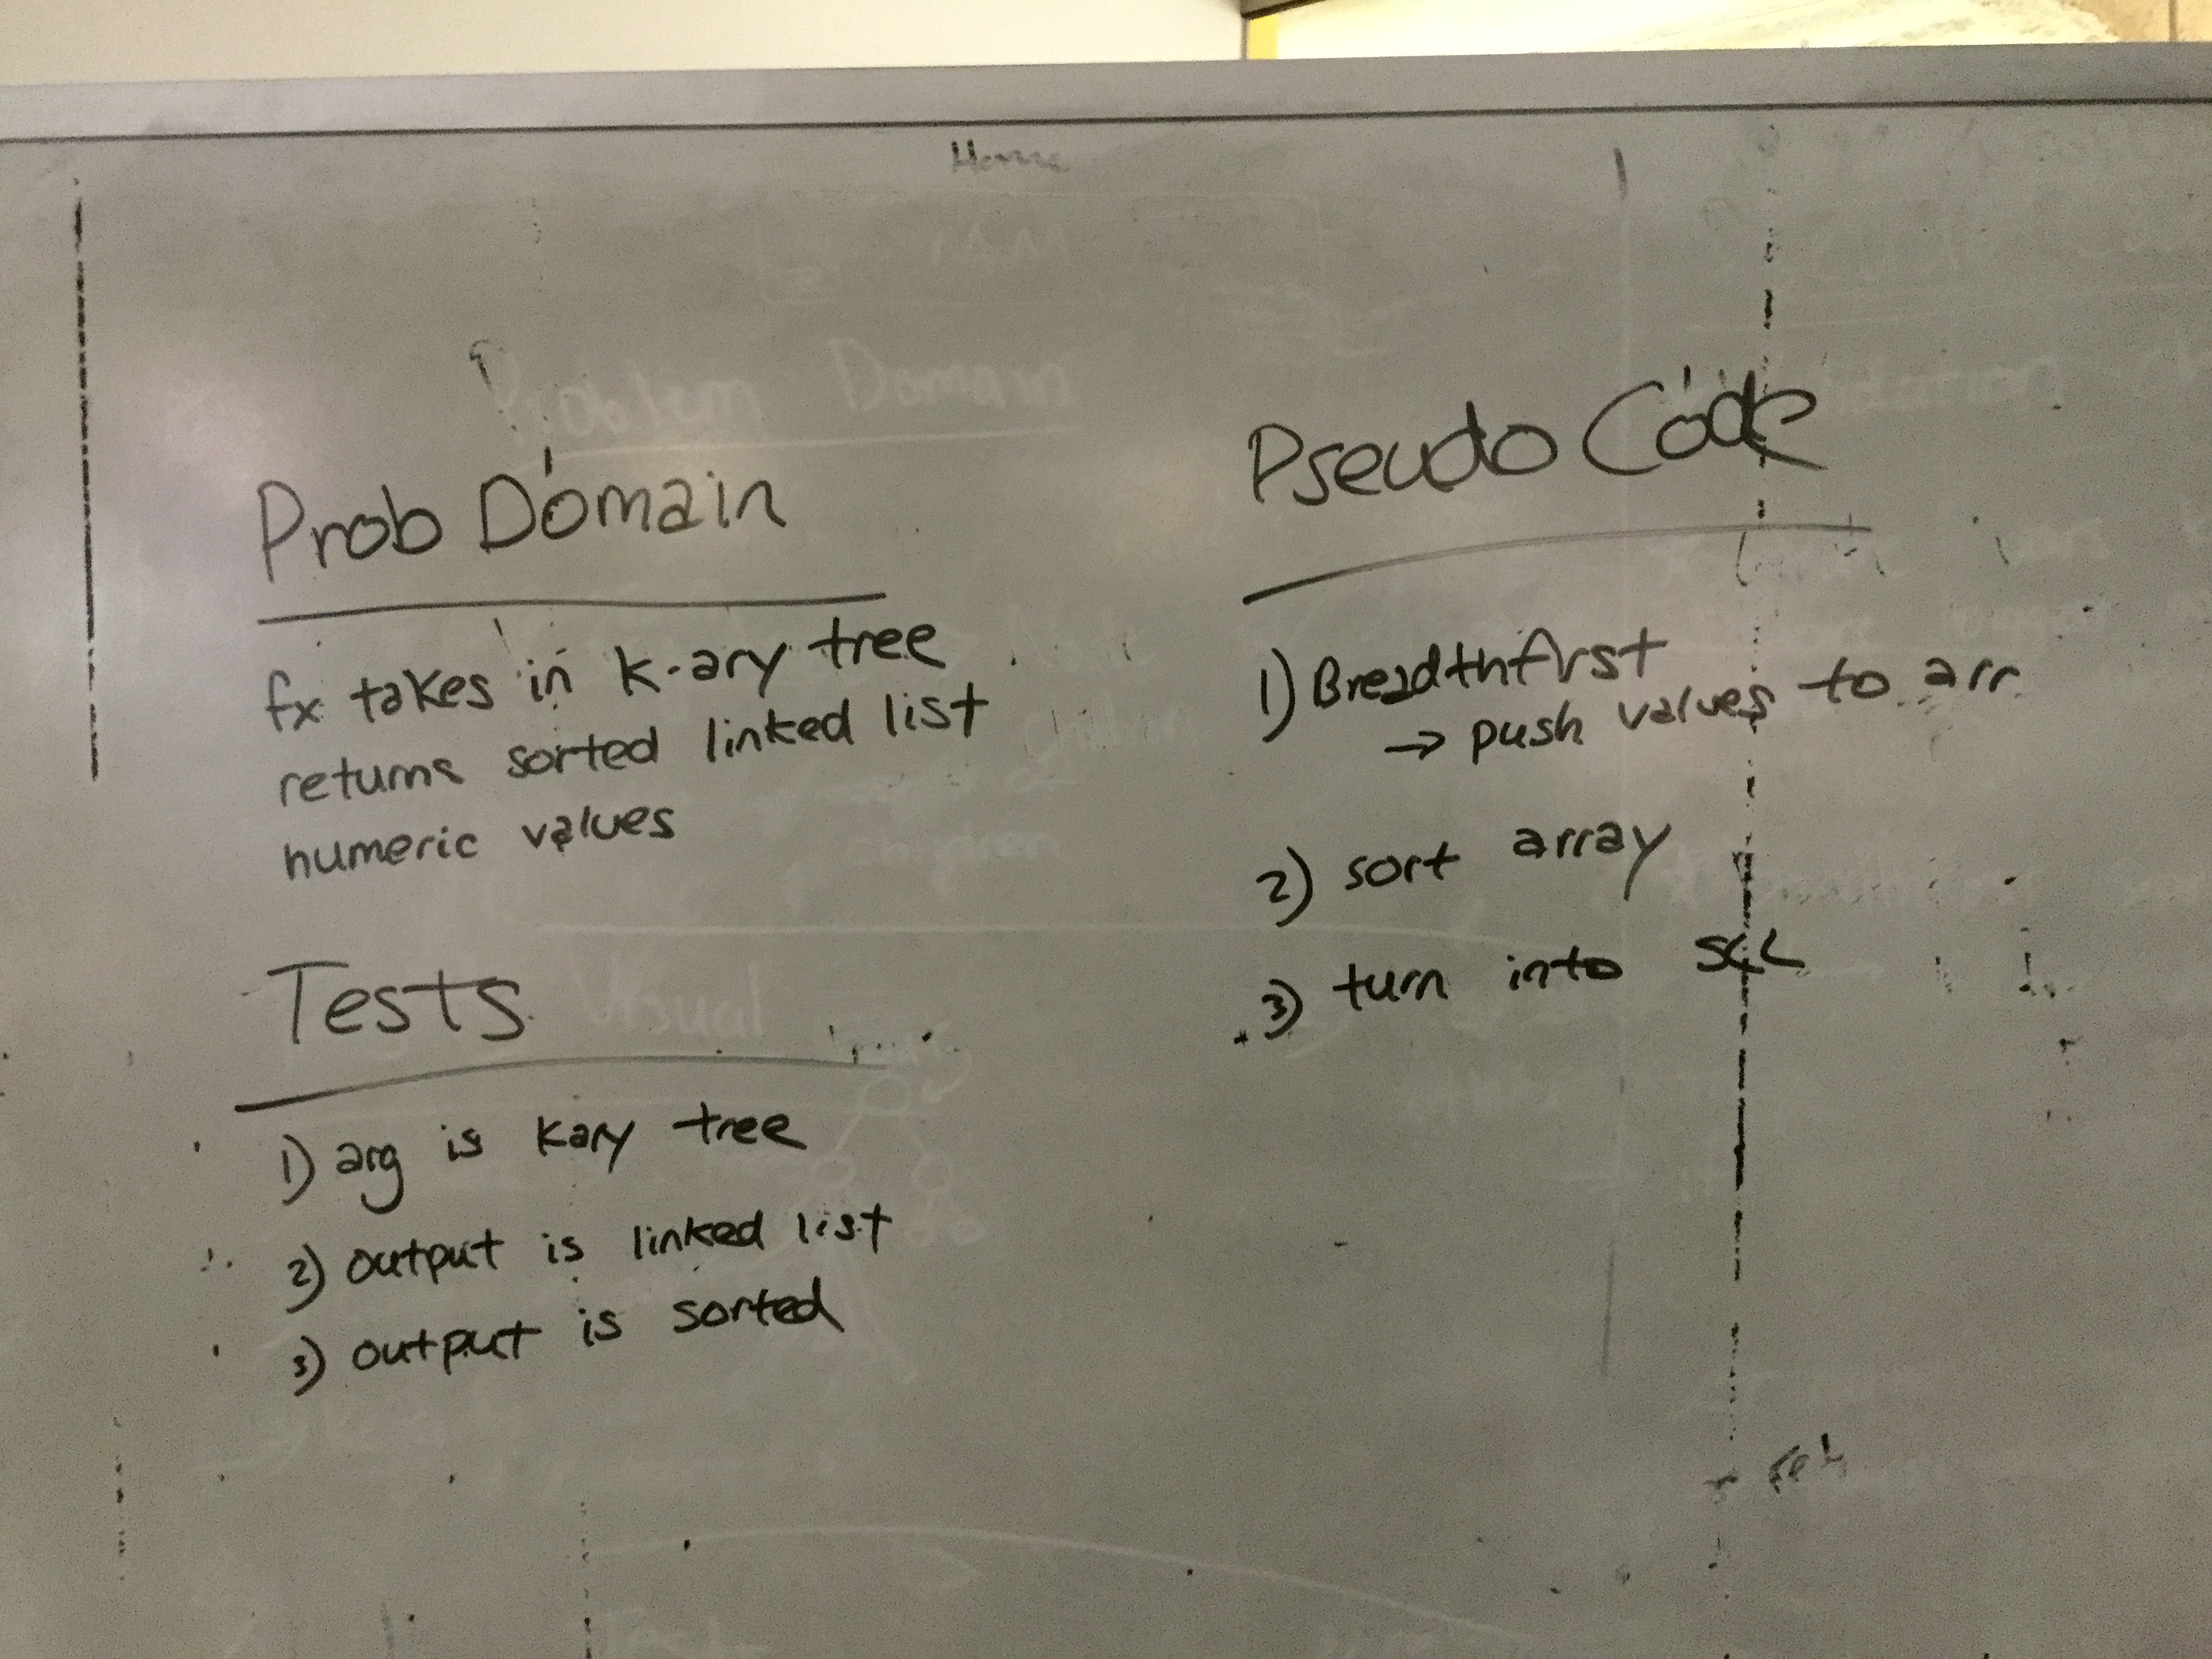 Home
Problem Domain
Prob Domain
fx takes in k-ary tree
returns sorted linked list
numeric values
Tests
Visual
1) arg is kary tree
2) output is linked list
3) output is sorted
Pseudo Code
1) Breadthfirst
→ push values to arr
2) sort array
3) turn into SLL